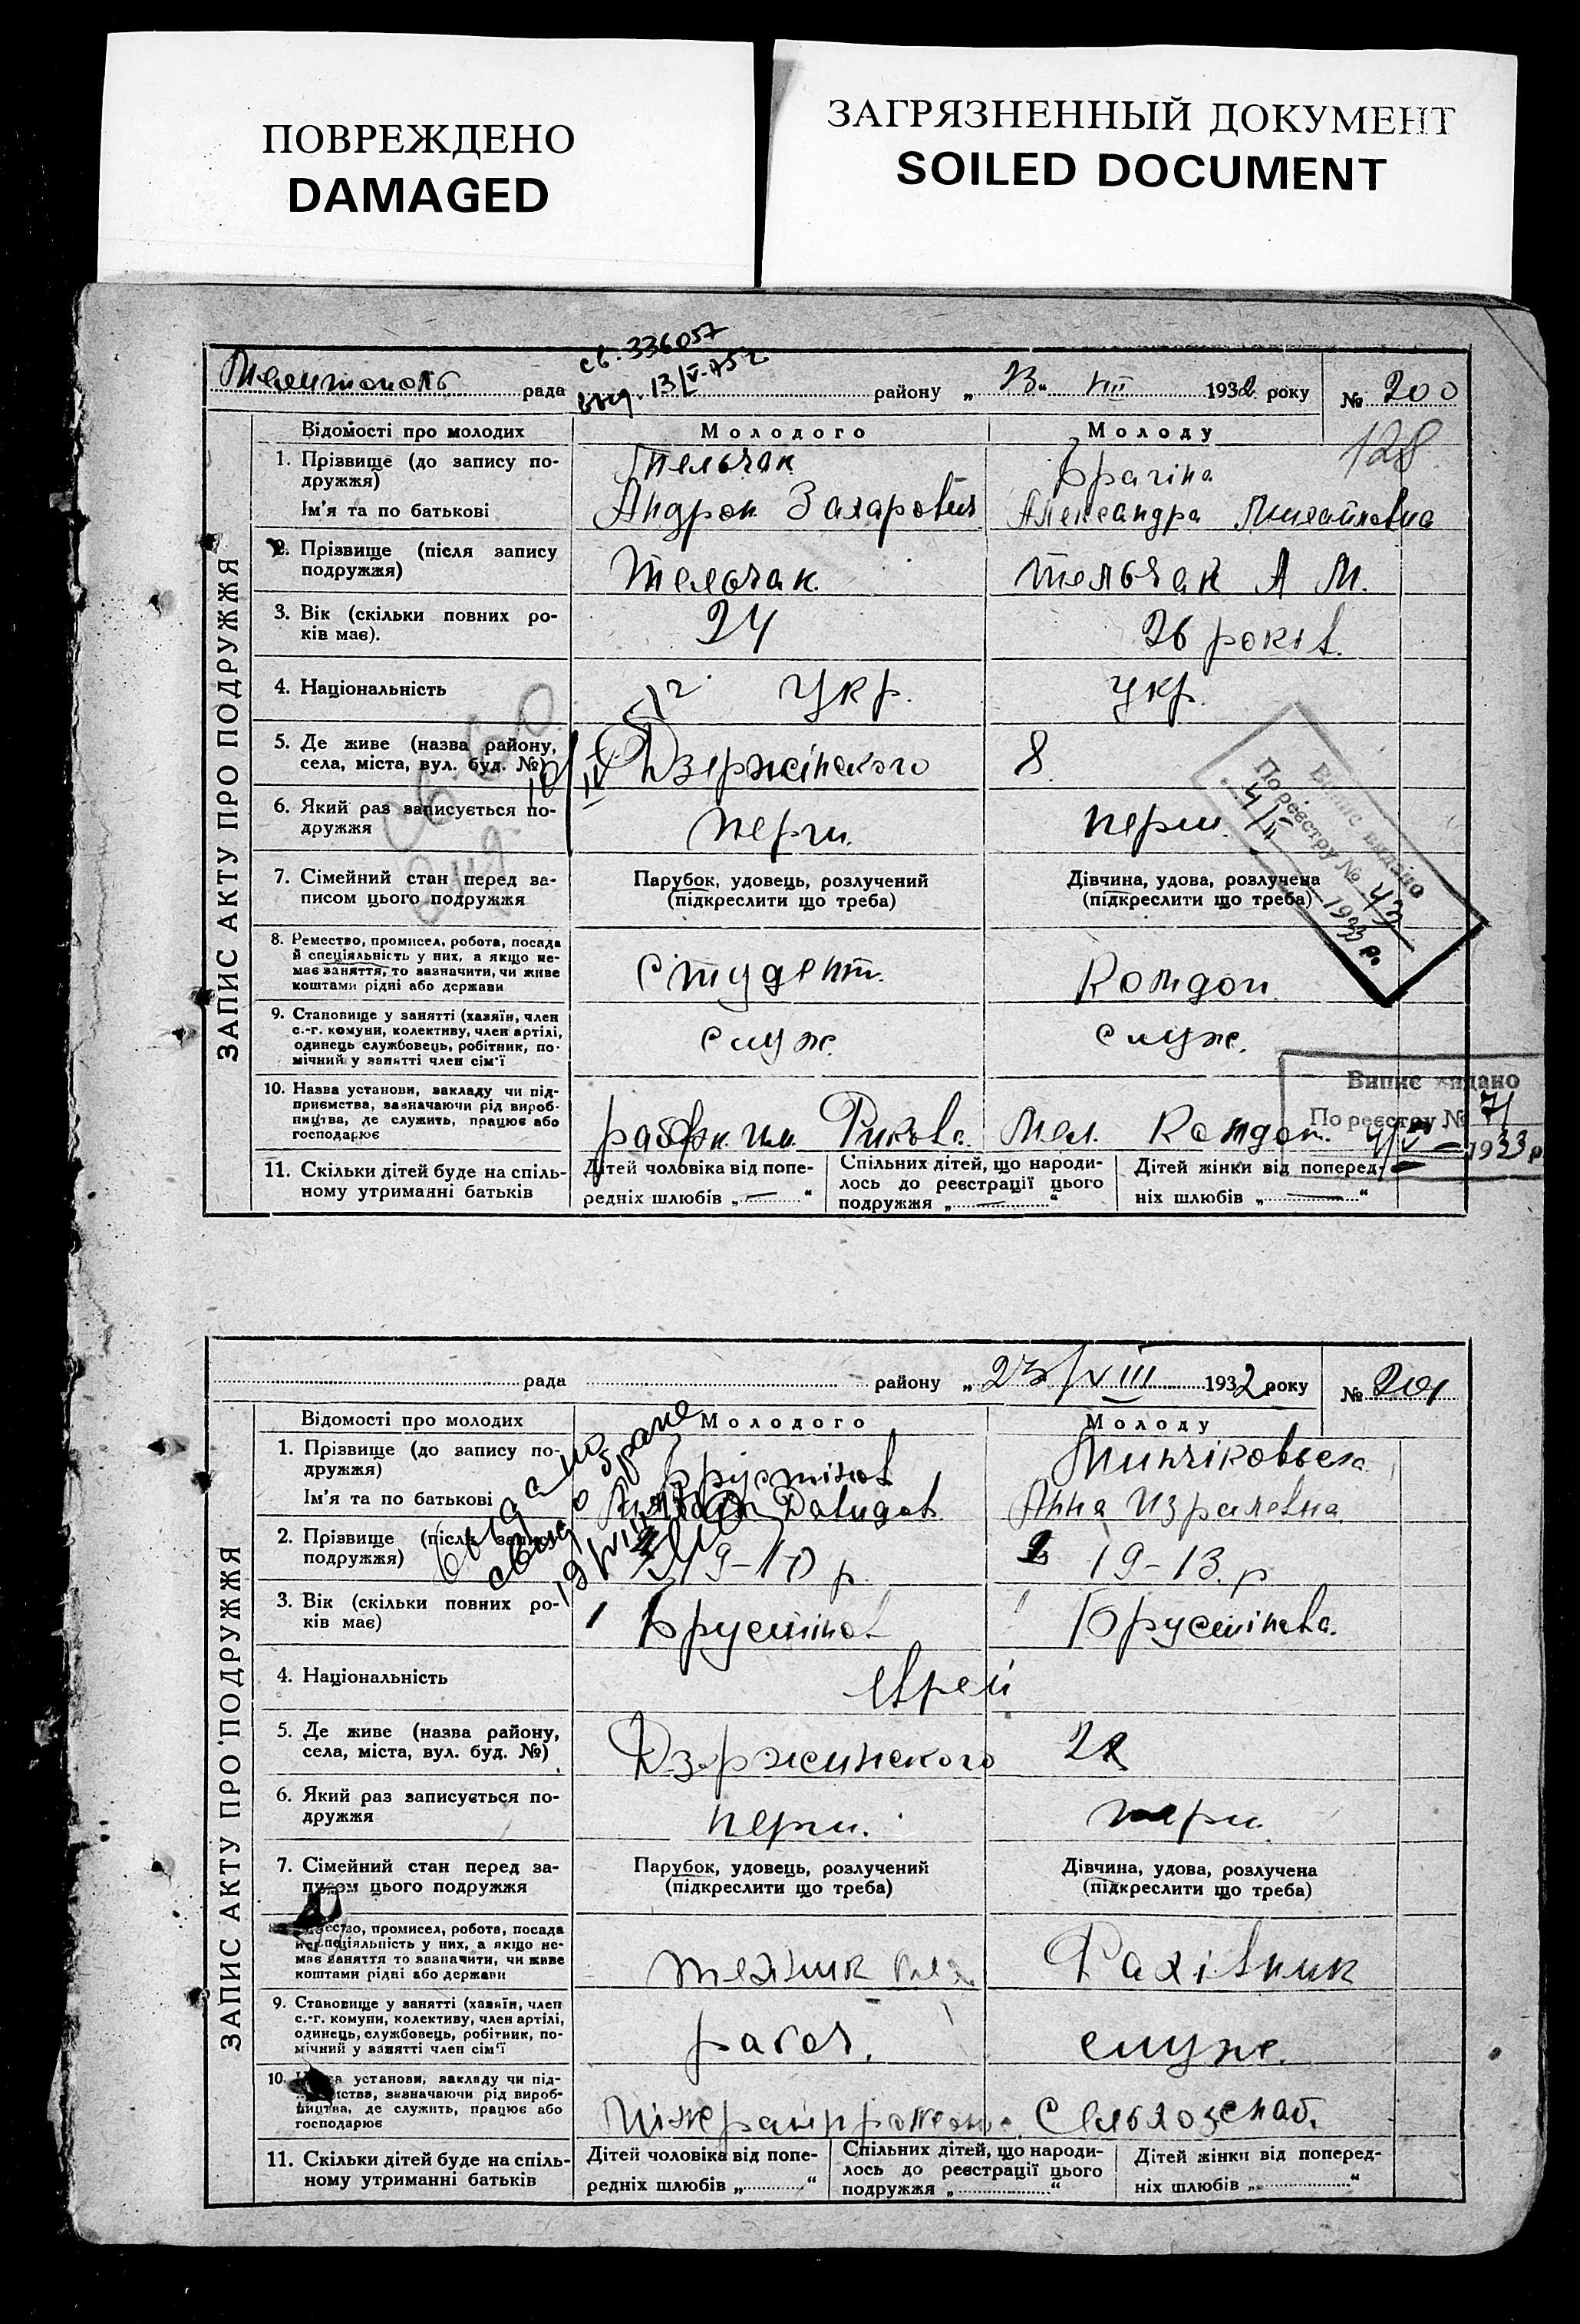 ПОВРЕЖДЕНО
DAMAGED
ЗАГРЯЗНЕННЫЙ ДОКУМЕНТ
SOILED DOCUMENT
св. 336057
Мелитополь рада выд. 13/V-75г району „23“ VIII 1932 року № 200
128
ЗАПИС АКТУ ПРО ПОДРУЖЖЯ
Відомості про молодих Молодого Молоду
1. Прізвище (до запису по-
дружжя) Тельчак Брагіна
Ім'я та по батькові Андрон Захарович Александра Михайловна
2. Прізвище (після запису
подружжя) Тельчак Тельчак А М.
3. Вік (скільки повних ро-
ків має). 24 26 років.
4. Національність Укр. Укр.
5. Де живе (назва району,
села, міста, вул. буд. №) Дзержінского 8.
6. Який раз записується по-
дружжя перш. перш.
7. Сімейний стан перед за-
писом цього подружжя
Парубок, удовець, розлучений
(підкреслити що треба)
Дівчина, удова, розлучена
(підкреслити що треба)
Випис видано
По реєстру № 43
4/II 1933 р.
8. Ремество, промисел, робота, посада
й спеціяльність у них, а якщо не-
має заняття, то зазначити, чи живе
коштами рідні або держави
студент.
9. Становище у занятті (хазяїн, член
с.-г. комуни, колективу, член артілі,
одинець службовець, робітник, по-
мічний у занятті член сім'ї
служ. служ.
Випис видано
По реєстру № 71
1933 р
10. Назва установи, закладу чи під-
приємства, зазначаючи рід вироб-
ництва, де служить, працює або
господарює
рабфк им. Рикова. Мел.
11. Скільки дітей буде на спіль-
ному утриманні батьків
Дітей чоловіка від попе-
редніх шлюбів „—“
Спільних дітей, що народи-
лось до реєстрації цього
подружжя „—“
Дітей жінки від поперед-
ніх шлюбів „—“
рада району „23/VIII 1932 року № 201
ЗАПИС АКТУ ПРО ПОДРУЖЖЯ
Відомості про молодих Молодого Молоду
1. Прізвище (до запису по-
дружжя) Брустінов Минчіковська
Ім'я та по батькові Давидов. Анна Израілевна
выдано
свид о браке
2. Прізвище (після запису
подружжя) 19-10 р. 19-13. р
3. Вік (скільки повних ро-
ків має) Брустінов Брустінова.
4. Національність єврей
5. Де живе (назва району,
села, міста, вул. буд. №) Дзержинского
6. Який раз записується по-
дружжя перш. перш.
7. Сімейний стан перед за-
писом цього подружжя
Парубок, удовець, розлучений
(підкреслити що треба)
Дівчина, удова, розлучена
(підкреслити що треба)
ество, промисел, робота, посада
спеціяльність у них, а якщо не-
має заняття то зазначити, чи живе
коштами рідні або держави
техник Рахівник
9. Становище у занятті (хазяїн, член
с.-г. комуни, колективу, член артілі,
одинець, службовець, робітник, по-
мічний у занятті член сім'ї
служ.
10. установи, закладу чи під-
мства, зазначаючи рід вироб-
ництва, де служить, працює або
господарює
Сельхозснаб.
11. Скільки дітей буде на спіль-
ному утриманні батьків
Дітей чоловіка від попе-
редніх шлюбів „ “
Спільних дітей, що народи-
лось до реєстрації цього
подружжя „ “
Дітей жінки від поперед-
ніх шлюбів „ “